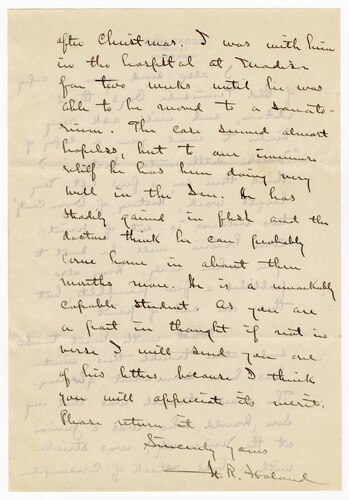 after Christmas. I was with him
in the hospital at Madison
for two weeks until he was
able to be moved to a sanato-
rium. The case seemed almost
hopeless, but to our immense
relief he has been doing very
well in the San. He has
steadily gained in flesh and the
doctors think he can probably
come home in about three
months more. He is a remarkably
capable student. As you are
a poet in thought if not in
verse I will send you one
of his letters, because I think
you will appreciate its merit.
Please return it.
Sincerely yours
H. R. Holand